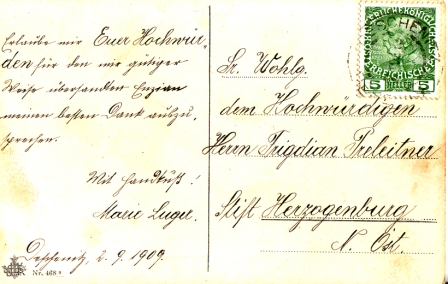 Erlaube mir Euer Hochwür-
den für den mir gütiger
Weise übersandten Enzian
meinen besten Dank auszu-
sprechen.
Mit Handkuß!
Marie Luger.
Deschenitz, 2.9.1909.
Nr. 468
Sr. Wohlg.
dem Hochwürdigen
Herrn Frigdian Preleitner
Stift Herzogenburg
N. Öst.
5 HELLER 5